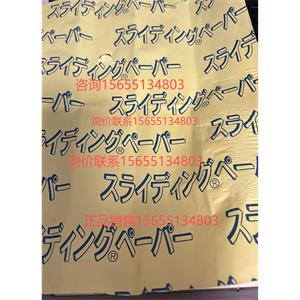 スライディング®ペーパー
咨询15655134803
スライディング®ペーパー
询价联系15655134803
スライディング®ペーパー
询价联系15655134803
スライディング®ペーパー
正品销售15655134803
スライディング®ペーパー